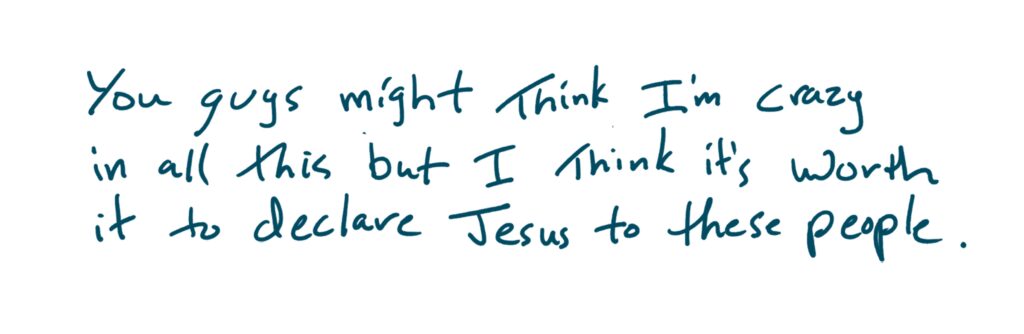 You guys might think I'm crazy
in all this but I think it's worth
it to declare Jesus to these people.